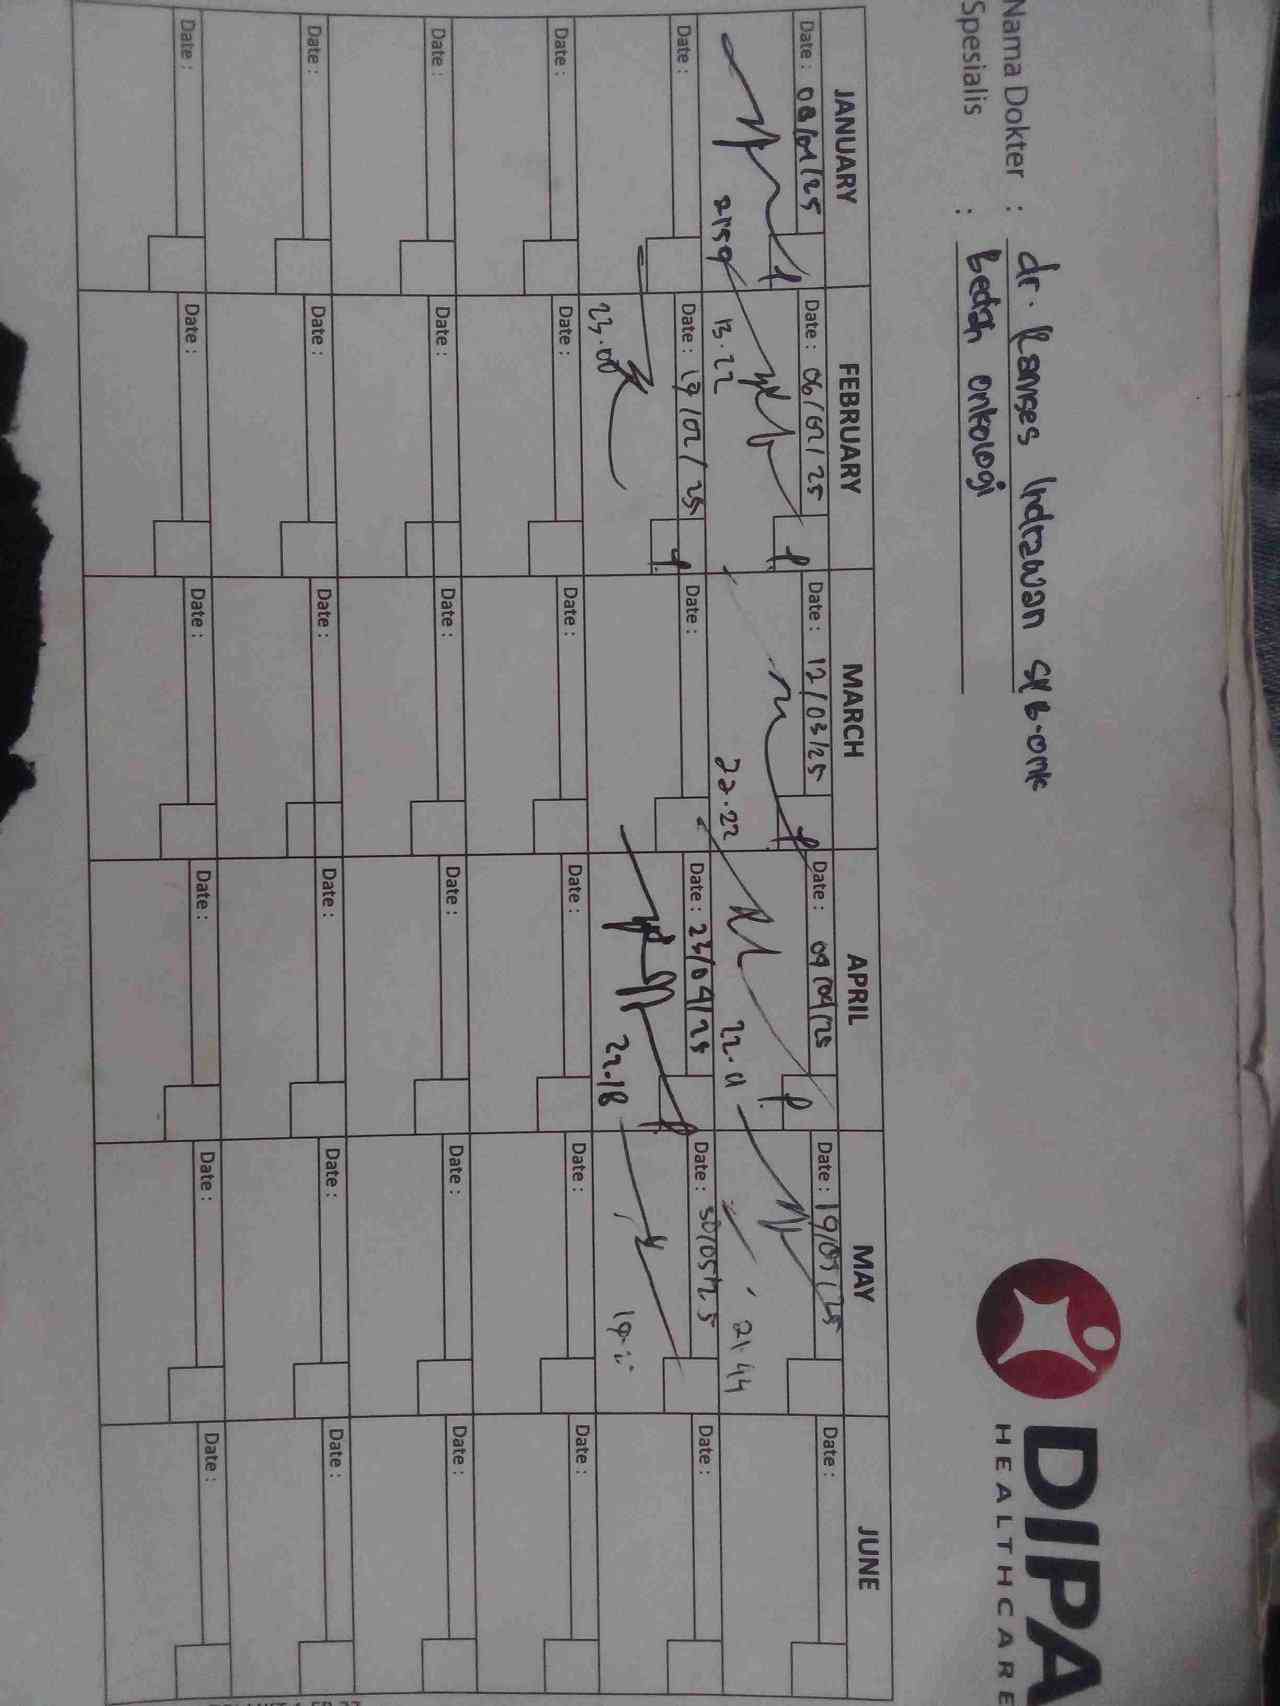 DIPA
HEALTHCARE
Nama Dokter : dr. Ramses Indrawan SpB-onk
Spesialis : Bedah onkologi
JANUARY FEBRUARY MARCH APRIL MAY JUNE
Date : 08/01/25 Date : 06/02/25 Date : 12/03/25 Date : 09/04/25 Date : 19/05/25 Date :
2159 13.22 22.22 21.44
Date : Date : 17/02/25 Date : Date : 23/04/25 Date : 30/05/25 Date :
23.00 22.18
Date : Date : Date : Date : Date : Date :
Date : Date : Date : Date : Date : Date :
Date : Date : Date : Date : Date : Date :
Date : Date : Date : Date : Date : Date :